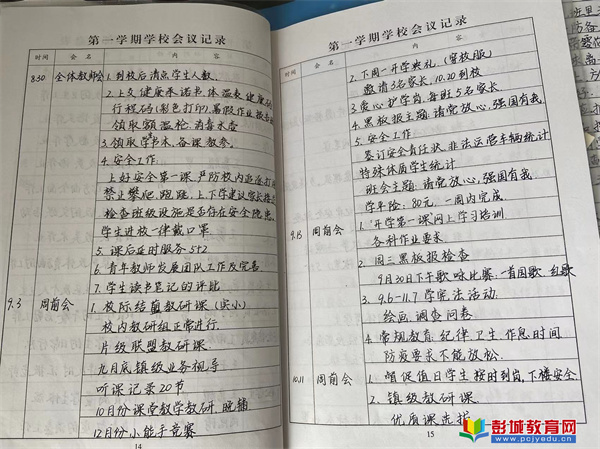 第一学期学校会议记录
时间 会名 内容
8.30 全体教师会 1. 到校后清点学生人数.
2. 上交健康承诺书.体温数.健康码
行程码(彩色打印).暑假作业报告
领取额温枪.消毒水壶
3. 领取学生书本.备课教参.
4. 安全工作.
上好安全第一课.严防校内追逐打闹
禁止攀爬.跑跳.上下学建议家长接送
检查班级设施是否存在安全隐患.
学生进校一律戴口罩
5. 课后延时服务5+2
6. 青年教师发展团队工作及完善
7. 学生读书笔记的评比
9.3 周前会 1. 校际结盟教研课(实小)
校内教研组正常进行.
片级联盟教研课.
九月底镇级业务视导
听课记录20节
10月份课堂教学教研.晚辅
12月份小能手竞赛
14
第一学期学校会议记录
时间 会名 内容
2. 下周一开学典礼.(穿校服)
邀请3名家长.10.20到校
3. 爱心护学岗.每班5名家长.
4. 黑板报主题:请党放心,强国有我
5. 安全工作.
签订安全责任状.非法运营车辆统计
特殊体质学生统计
班会主题:请党放心,强国有我.
学平险:80元.一周内完成.
9.13 周前会 1. 开学第一课网上学习培训.
各科作业要求.
2. 周三黑板报检查.
9月30日下午歌咏比赛.一首国歌 红歌
3. 9.6-11.7学宪法活动.
绘画.调查问卷
4. 常规教育.纪律.卫生.作息时间
防疫要求不能放松.
10.11 周前会 1. 督促值日学生按时到岗,下楼安全.
2. 镇级教研课.
优质课选拔
15
彭城教育网
www.pcjyedu.cn